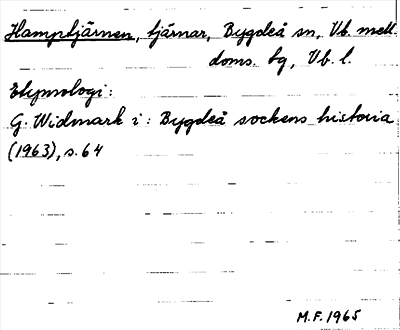 Hamptjärnen, tjärnar, Bygdeå sn, Vb. mell.
doms. bg, Vb. l.
Etymologi:
G. Widmark i: Bygdeå sockens historia
(1963), s. 64
M.F. 1965